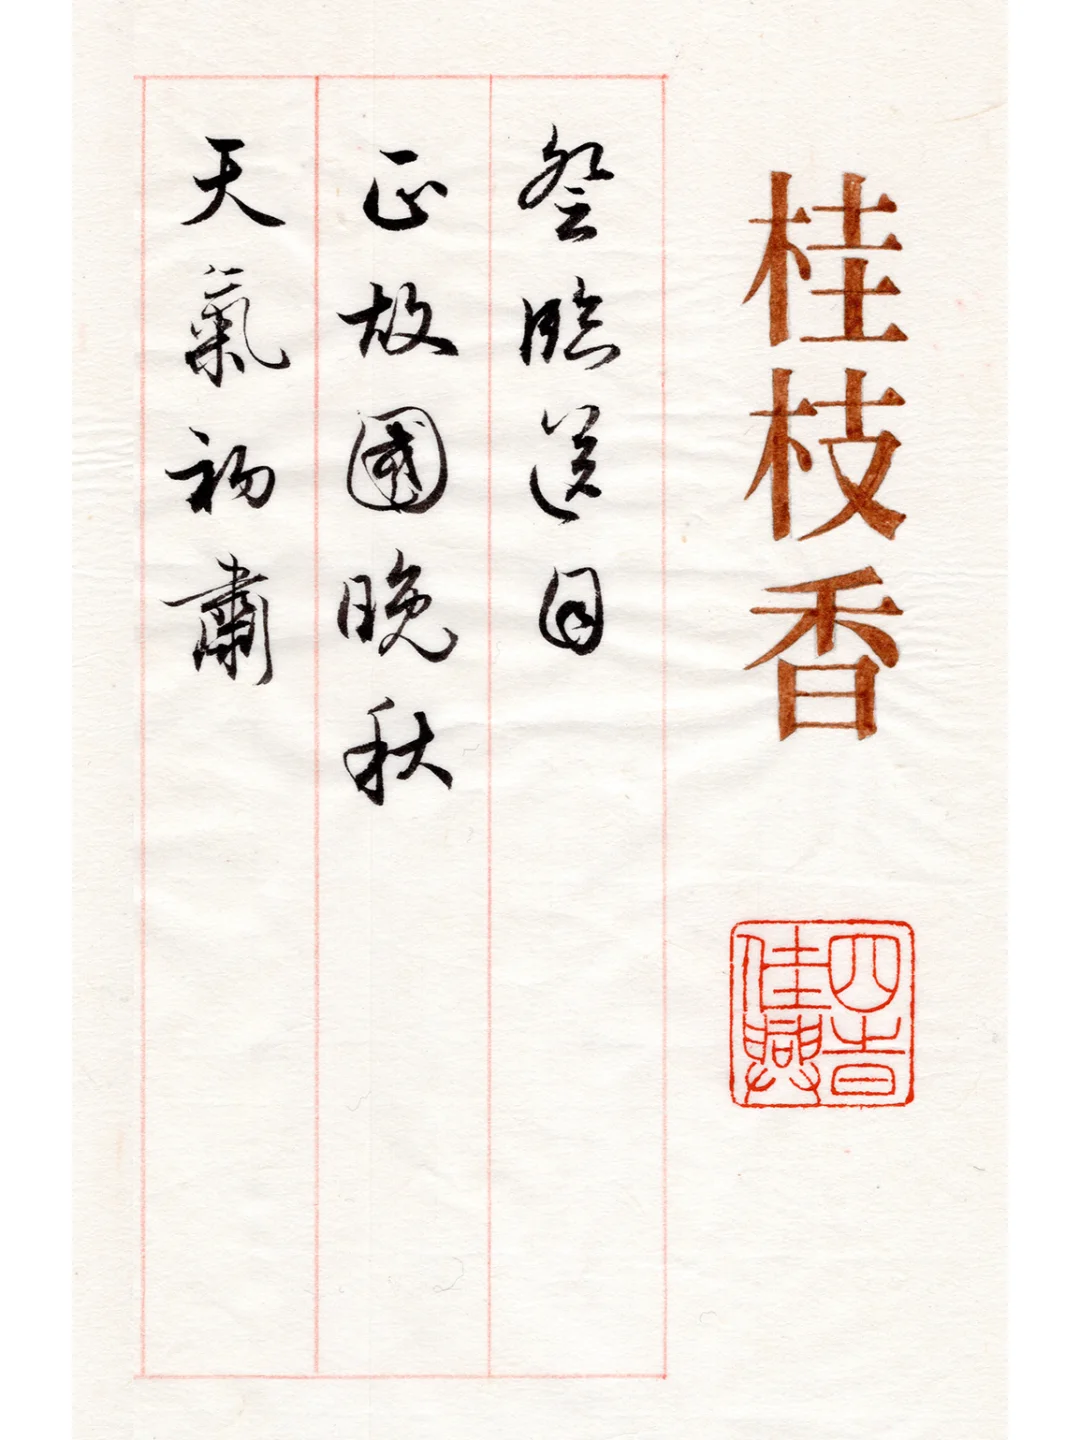 桂枝香
四旹佳興
登臨送目
正故國晚秋
天氣初肅